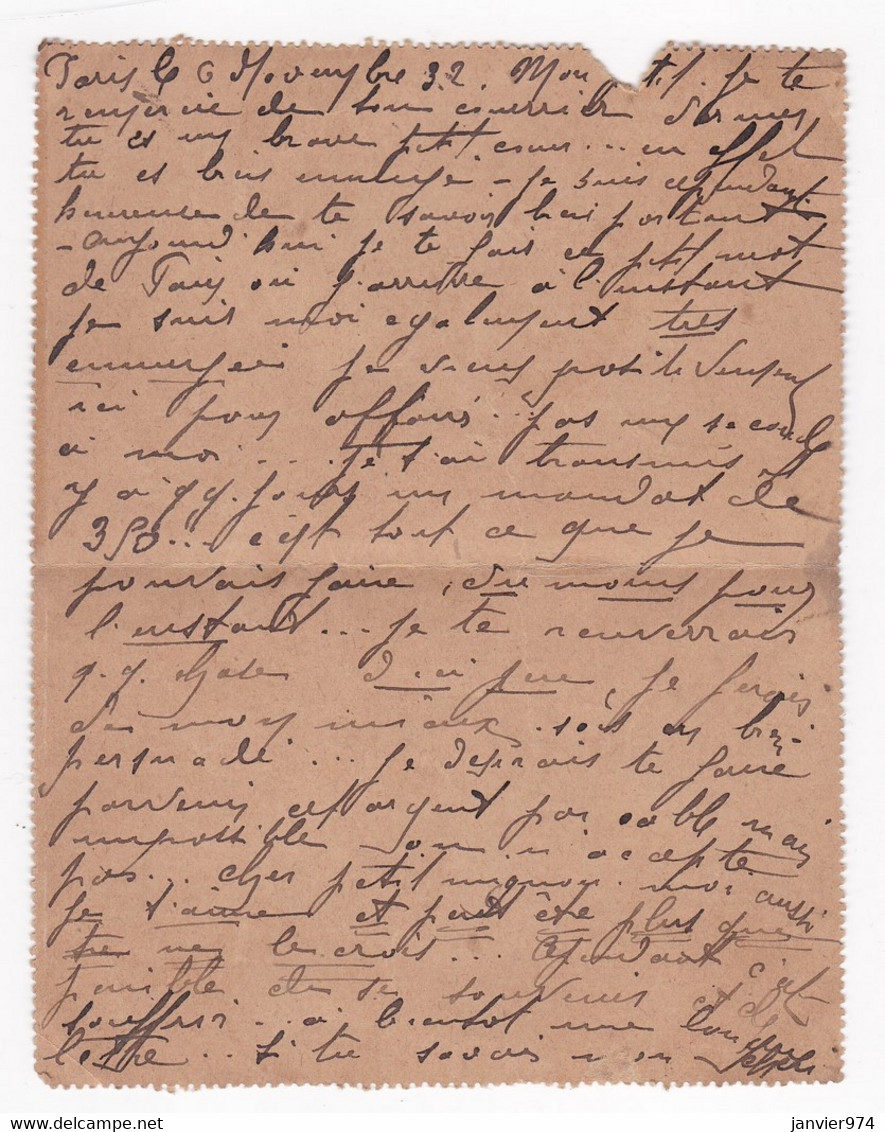 Paris le 6 Novembre 32. Mon je te
remercie de ton courrier
tu es un brave petit cœur... en effet
tu es bien ennuyé - je suis cependant
heureuse de te savoir bien portant
- aujourd'hui je te fais ce petit mot
de Paris où j'arrive à l'instant
je suis moi également très
ennuyée je viens
ici pour affaires.. pas une seconde
à moi... je t'ai transmis
y a qq. jours un mandat de
350... c'est tout ce que je
pouvais faire, du moins pour
l'instant... je te renverrais
q.q. chose d'ici peu, je ferais
de mon mieux. sois en bien
persuadé... je désirais te faire
parvenir cet argent par cable mais
impossible on n'accepte
pas... cher petit mignon. moi aussi
je t'aime et peut être plus que
tu ne le crois... Cependant c'est
pénible de se souvenir et de
souffrir... à bientôt une longue
lettre.. si tu savais mon
janvier974
Delcampe.net